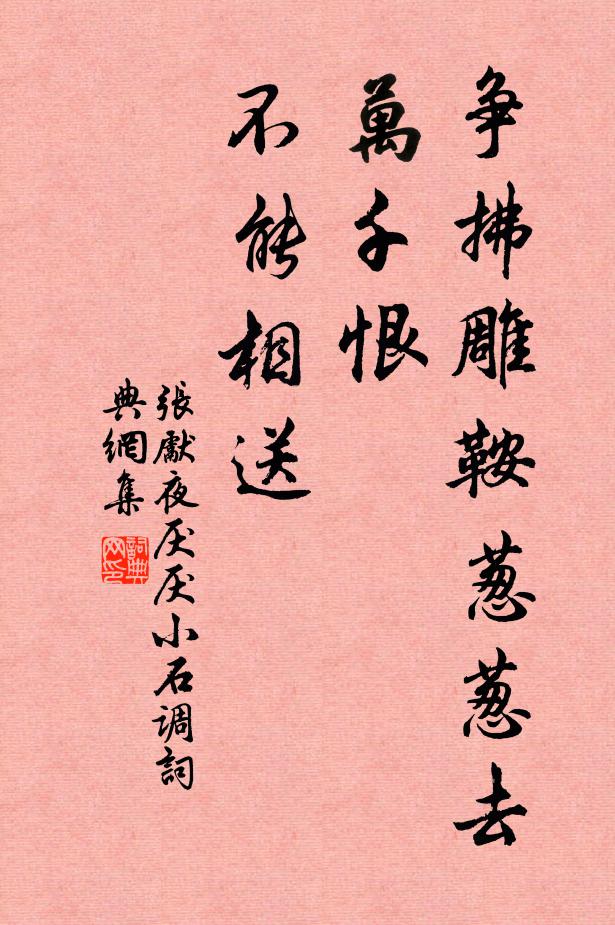 争拂雕鞍葱葱去
萬千恨
不能相送
張獻夜厌厌小石调詞
典網集
詞典网印